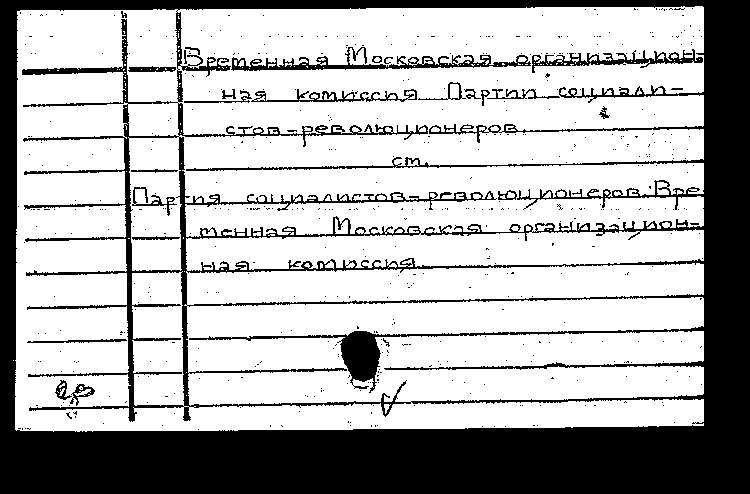 Временная Московская организацион-
ная комиссия Партии социали-
стов-революционеров.
ст.
Партия социалистов-революционеров. Вре
менная Московская организацион-
ная комиссия.